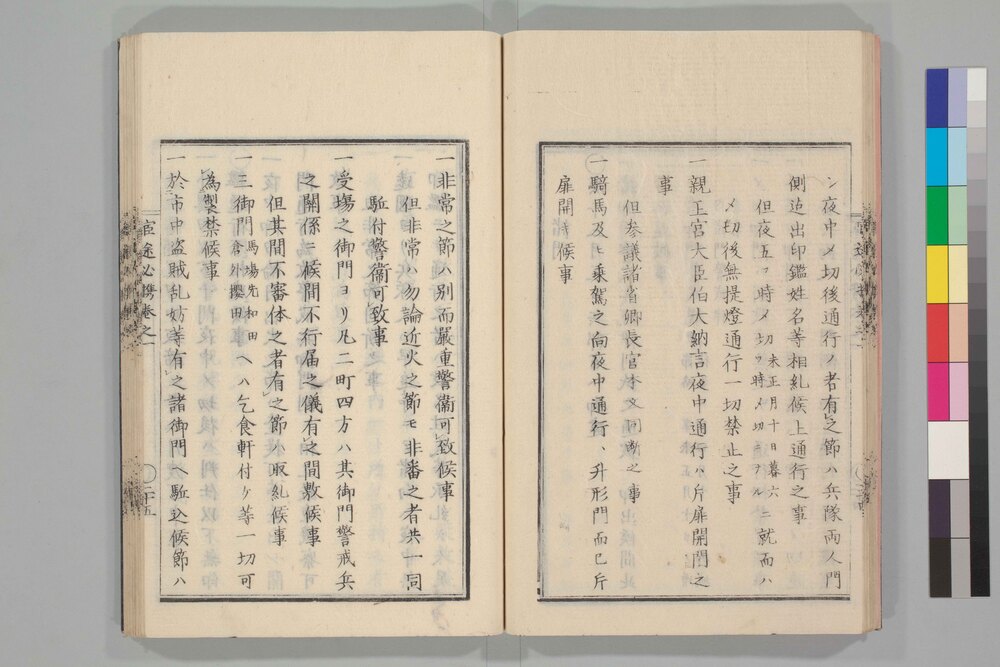 ン夜中〆切後通行ノ者有之節ハ兵隊両人門
側迠出印鑑姓名等相糺候上通行之事
但夜五ツ時〆切
未正月十日暮六ニ就而ハ
〆切後無提燈通行一切禁止之事
一親王官大臣伯大納言夜中通行ハ片扉開閉之
事
但参議諸省卿長官本文同断之事
一騎馬及ヒ乗駕之向夜中通行、升形門而已斤
扉開キ候事
一非常之節ハ別而嚴重警衞可致候事
但非常ハ勿論近火之節モ非番之者共一同
駈付警衞可致事
一受塲之御門ヨリ凡二町四方ハ其御門警戒兵
之關係ニ候間不行届之儀有之間敷候事
但其間不審体之者有之節ハ取糺候事
一三御門
馬場先
和田
倉外櫻田
ヘハ乞食軒付ケ等一切可
為製禁候事
一於市中盗賊乱妨等有之諸御門ヘ駈込候節ハ
官途必携巻之一
二十五